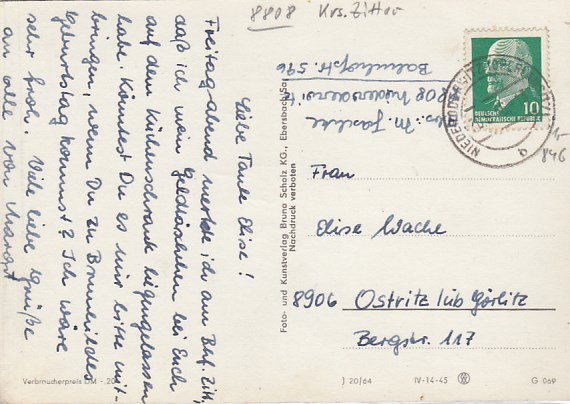 8808 Krs. Zittau
Liebe Tante Elise!
Freitagabend merkte ich am Bhf. Zitt.,
daß ich mein Geldtäschchen bei Euch
auf dem Küchenschrank liegengelassen
habe. Könntest Du es mir bitte mit-
bringen, wenn Du zu Brunhildes
Geburtstag kommst? Ich wäre
sehr froh. Viele liebe Grüße
an alle von Margot
Verbraucherpreis DM -,20
Foto- und Kunstverlag Bruno Scholz KG., Ebersbach/Sa.
Nachdruck verboten
Abs.: M.
8808 Niederoderwitz
Bahnhofstr. 596
10
DEUTSCHE
DEMOKRATISCHE REPUBLIK
846
Frau
Elise Wache
8906 Ostritz üb Görlitz
Bergstr. 117
J 20/64 IV-14-45 G 069